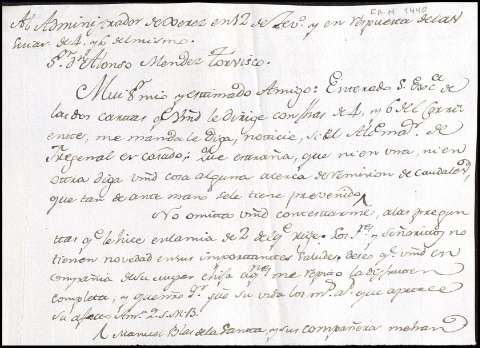 FR.M. 1440
Al Administrador de Xerez en 12 de Fev.º y en respuesta de las
suias de 4. y 6 del mismo.
S.r D.n Alonso Mendez Torvisco.
Mui S.r mio y estimado Amigo: Enterado S. Exc.a
de las dos cartas q.e Vmd le dirige con fhas de 4. y 6 del corri
ente, me manda le diga, noticie, si el Alc.e ma.r de
Frexenal es casado; Que estraña, que ni en una, ni en
otra diga Vmd cosa alguna acerca de remision de caudales,
que tan de ante mano se le tiene prevenido
No omita Vmd contestarme, a las pregun
ttas q.e le hice en la mia de 2 del q.e rixe. Los y Señoritos no
tienen novedad en sus importantes saludes deseo q.e Vmd en
compañia de su muger e hija me repita la disfruten
completta, y que nro S.r gue su vida los m.s a.s que apetece
su afecto Am.o Q.S.M.B.
Manuel Blas de la y sus compañeros mohan